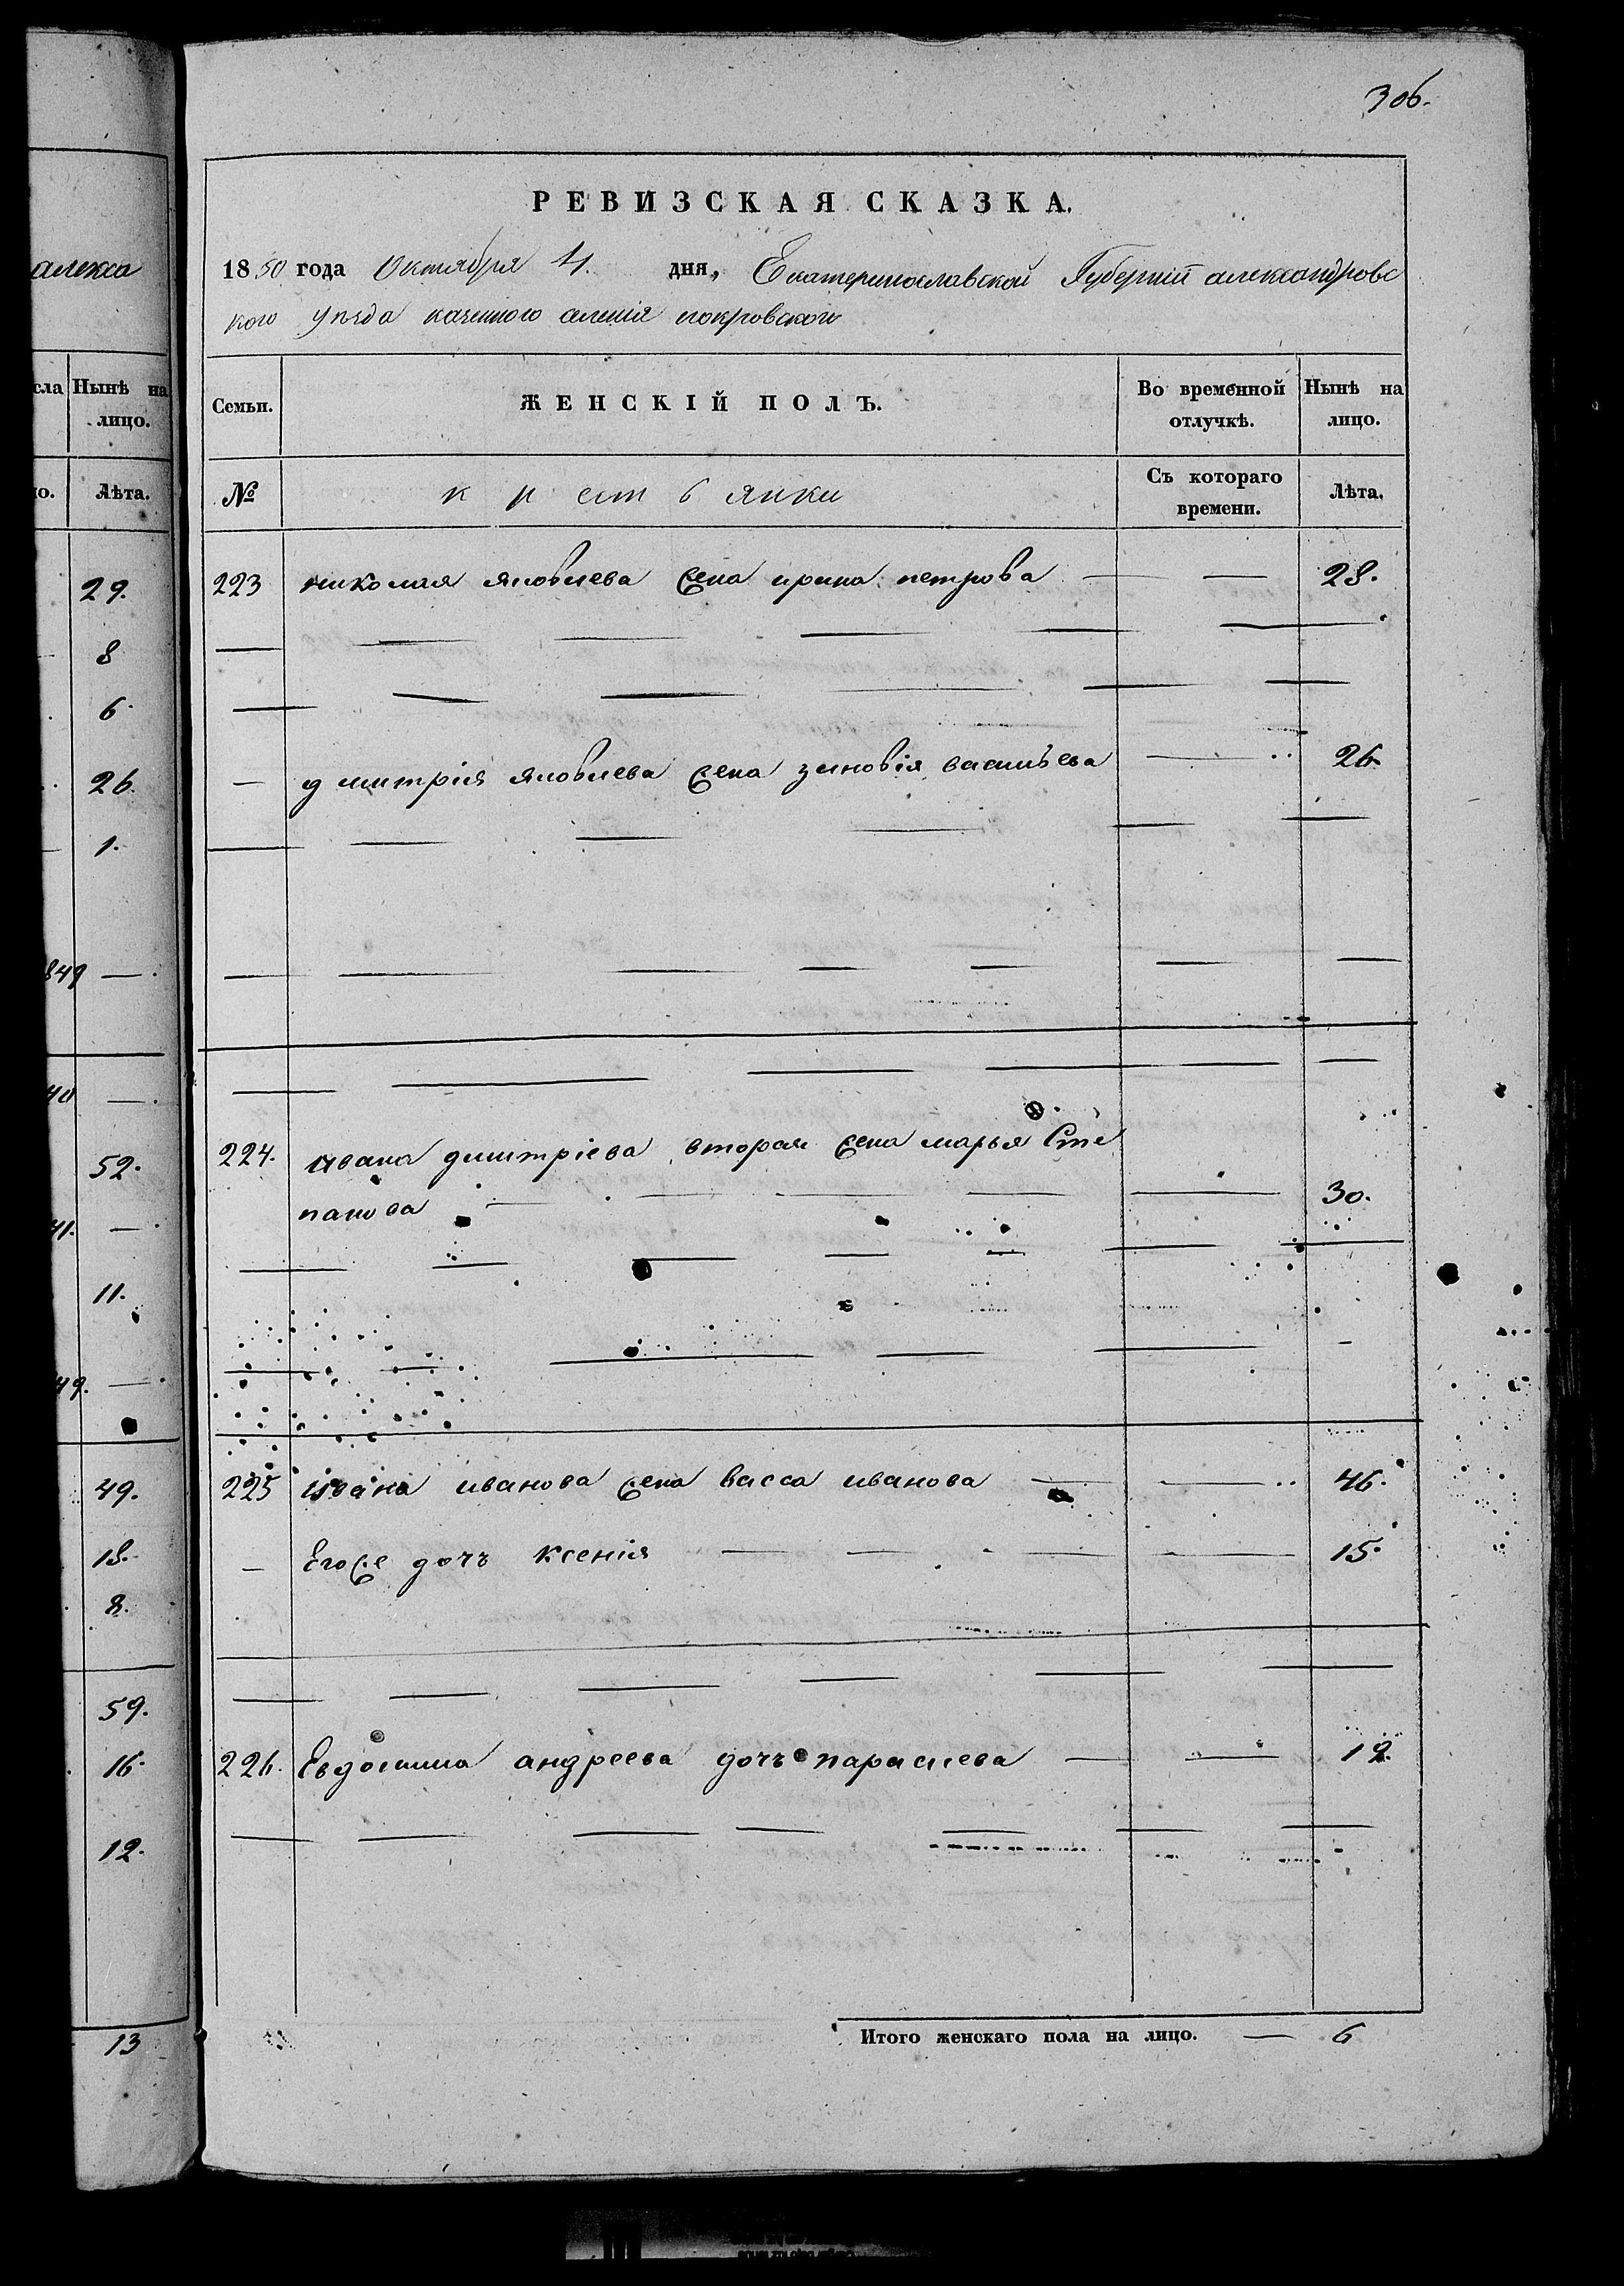 306.
алекса
РЕВИЗСКАЯ СКАЗКА.
1850 года Октября 4. дня, Екатеринославской Губерніи александровс
кого уѣзда казенного селенія покровского
сла
Нынѣ на лицо.
Семьи.
ЖЕНСКІЙ ПОЛЪ.
Во временной отлучкѣ.
Нынѣ на лицо.
Лѣта.
№
крестьянки
Съ котораго времени.
Лѣта.
29.
223 николая яковлева жена ирина петрова 28.
8
6.
26. дмитрія яковлева жена зиновія васильева 26.
1.
849
40
52.
224. ивана дмитріева вторая жена марья Сте
панова 30.
41.
11.
49.
49.
225 ивана иванова жена васса иванова 46.
18. Его же дочь ксенія 15.
8.
59.
16.
226. Евдокима андреева дочь 12.
12.
13
Итого женскаго пола на лицо. 6